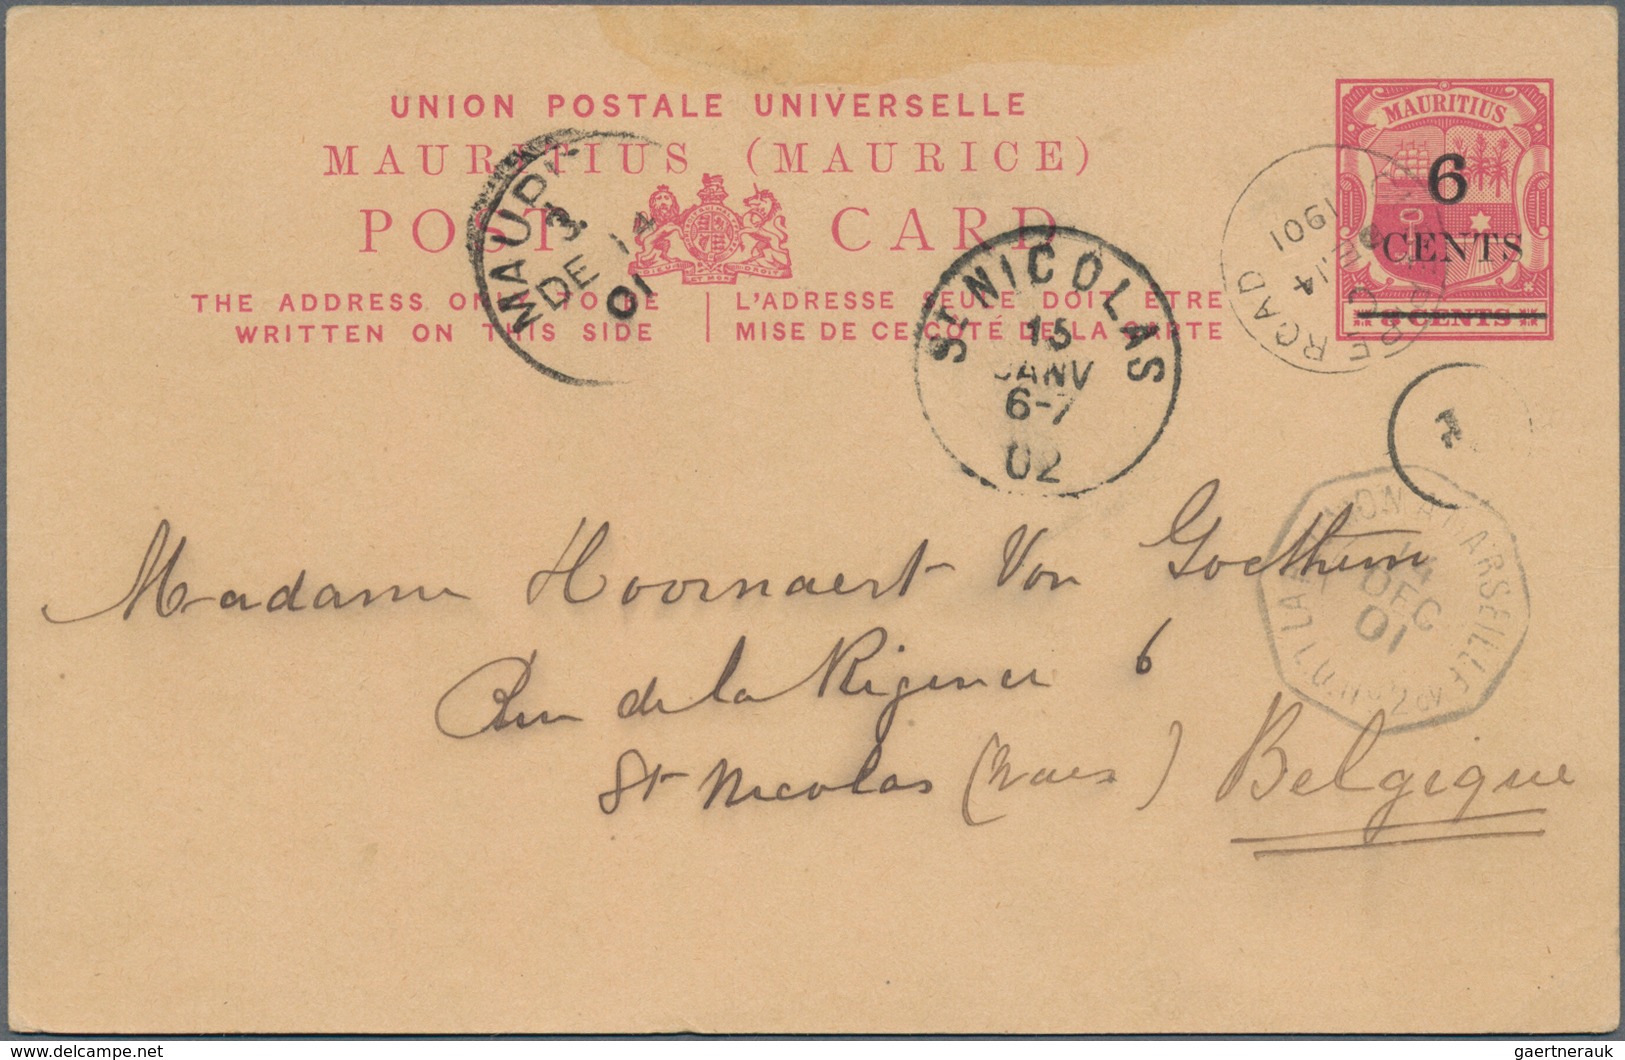 UNION POSTALE UNIVERSELLE
MAURITIUS (MAURICE)
POST CARD
THE ADDRESS ONLY TO BE WRITTEN ON THIS SIDE
L'ADRESSE SEULE DOIT ÊTRE MISE DE CE CÔTÉ DE LA CARTE
MAURITIUS
6
CENTS
8 CENTS
DE 14
01
ST NICOLAS
15
JANV
6-7
02
ROAD
14
1901
MARSEILLE
14
DEC
01
Madame Hoornaert Von Goethem
Rue de la Régence 6
St Nicolas (Waes) Belgique
www.delcampe.net
gaertnerauk